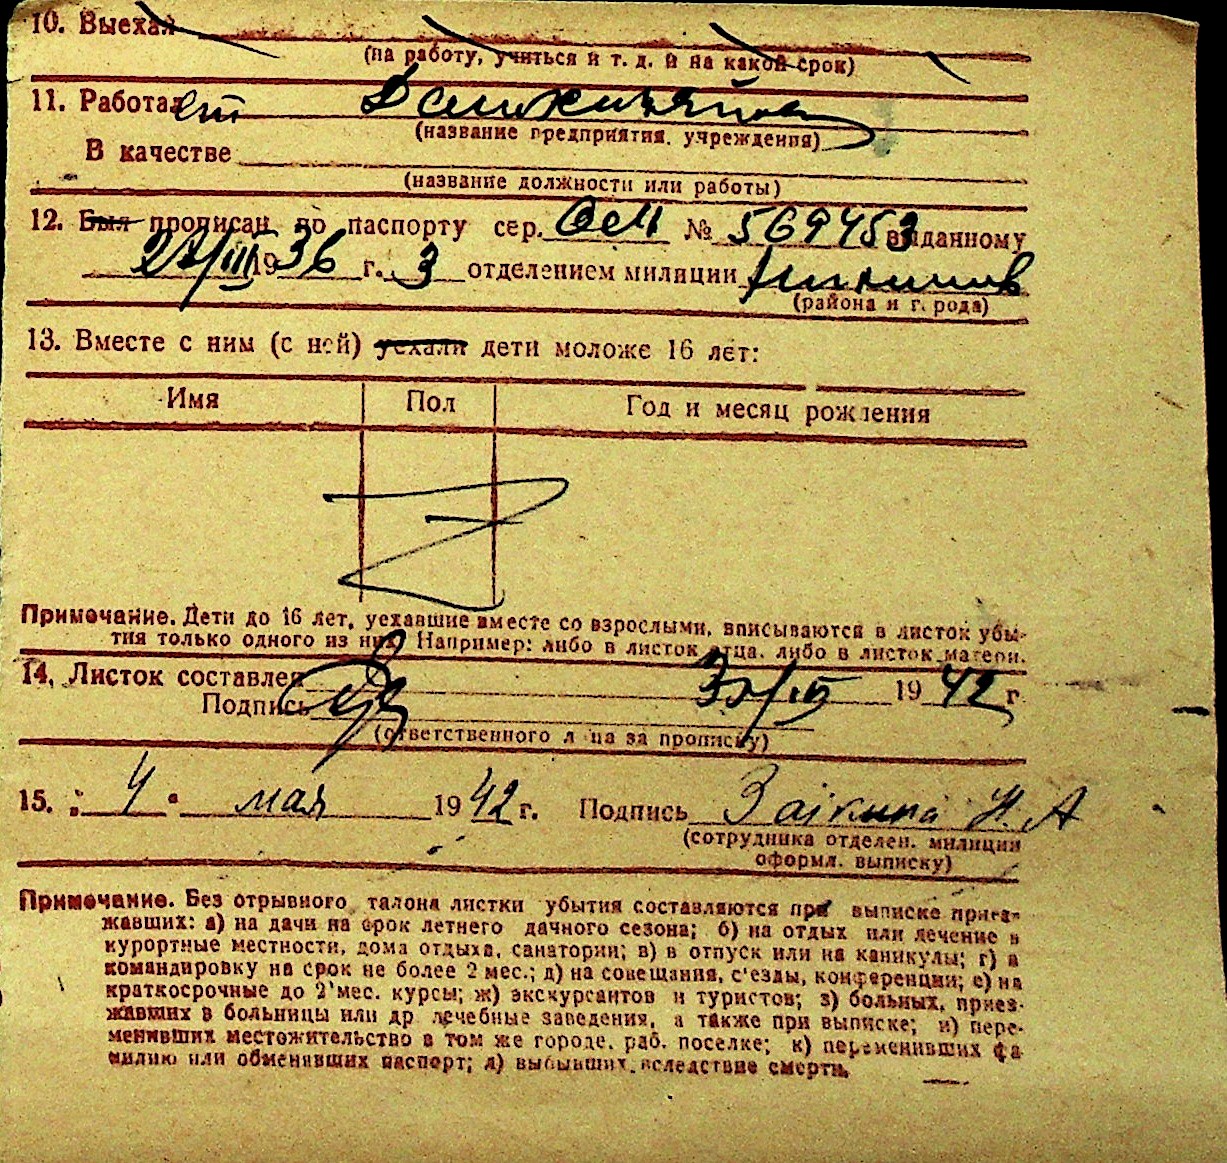 10. Выехал
(на работу, учиться и т. д. и на какой срок)
11. Работает Домохозяйка
(название предприятия, учреждения)
В качестве
(название должности или работы)
12. Был прописан по паспорту сер. № 569453 выданному
1936 г. 3 отделением милиции
(района и города)
13. Вместе с ним (с ней) уехали дети моложе 16 лет:
Имя Пол Год и месяц рождения
Примечание. Дети до 16 лет, уехавшие вместе со взрослыми, вписываются в листок убы-
тия только одного из них. Например: либо в листок отца, либо в листок матери.
14. Листок составлен 1942 г
Подпись
(ответственного лица за прописку)
15. „4“ мая 1942 г. Подпись Заікина Н. А
(сотрудника отделен. милиции
оформл. выписку)
Примечание. Без отрывного талона листки убытия составляются при выписке приез-
жавших: а) на дачи на срок летнего дачного сезона; б) на отдых или лечение в
курортные местности, дома отдыха, санатории; в) в отпуск или на каникулы; г) в
командировку на срок не более 2 мес.; д) на совещания, с'езды, конференции; е) на
краткосрочные до 2 мес. курсы; ж) экскурсантов и туристов; з) больных, приез-
жавших в больницы или др лечебные заведения, а также при выписке; и) пере-
менивших местожительство в том же городе, раб. поселке; к) переменивших фа-
милию или обменивших паспорт; л) выбывших вследствие смерти.